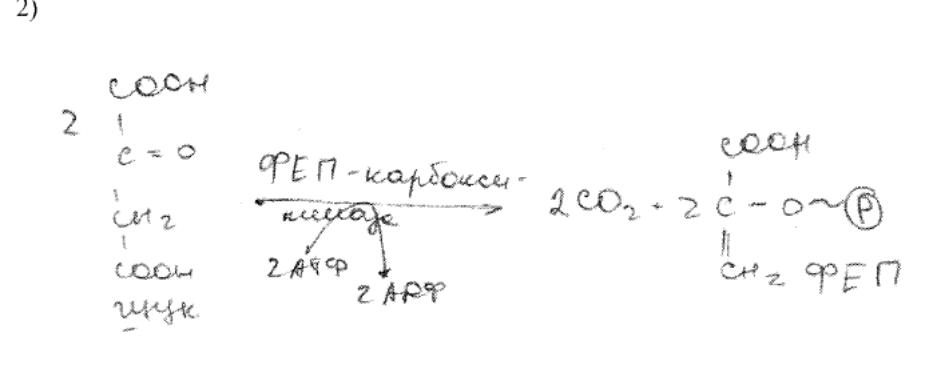 2)
COOH
2
C = O
CH2
COOH
ЩУК
ФЕП-карбокси-
киназа
2 АТФ
2 АДФ
2CO2 + 2
COOH
C - O ~ P
CH2 ФЕП